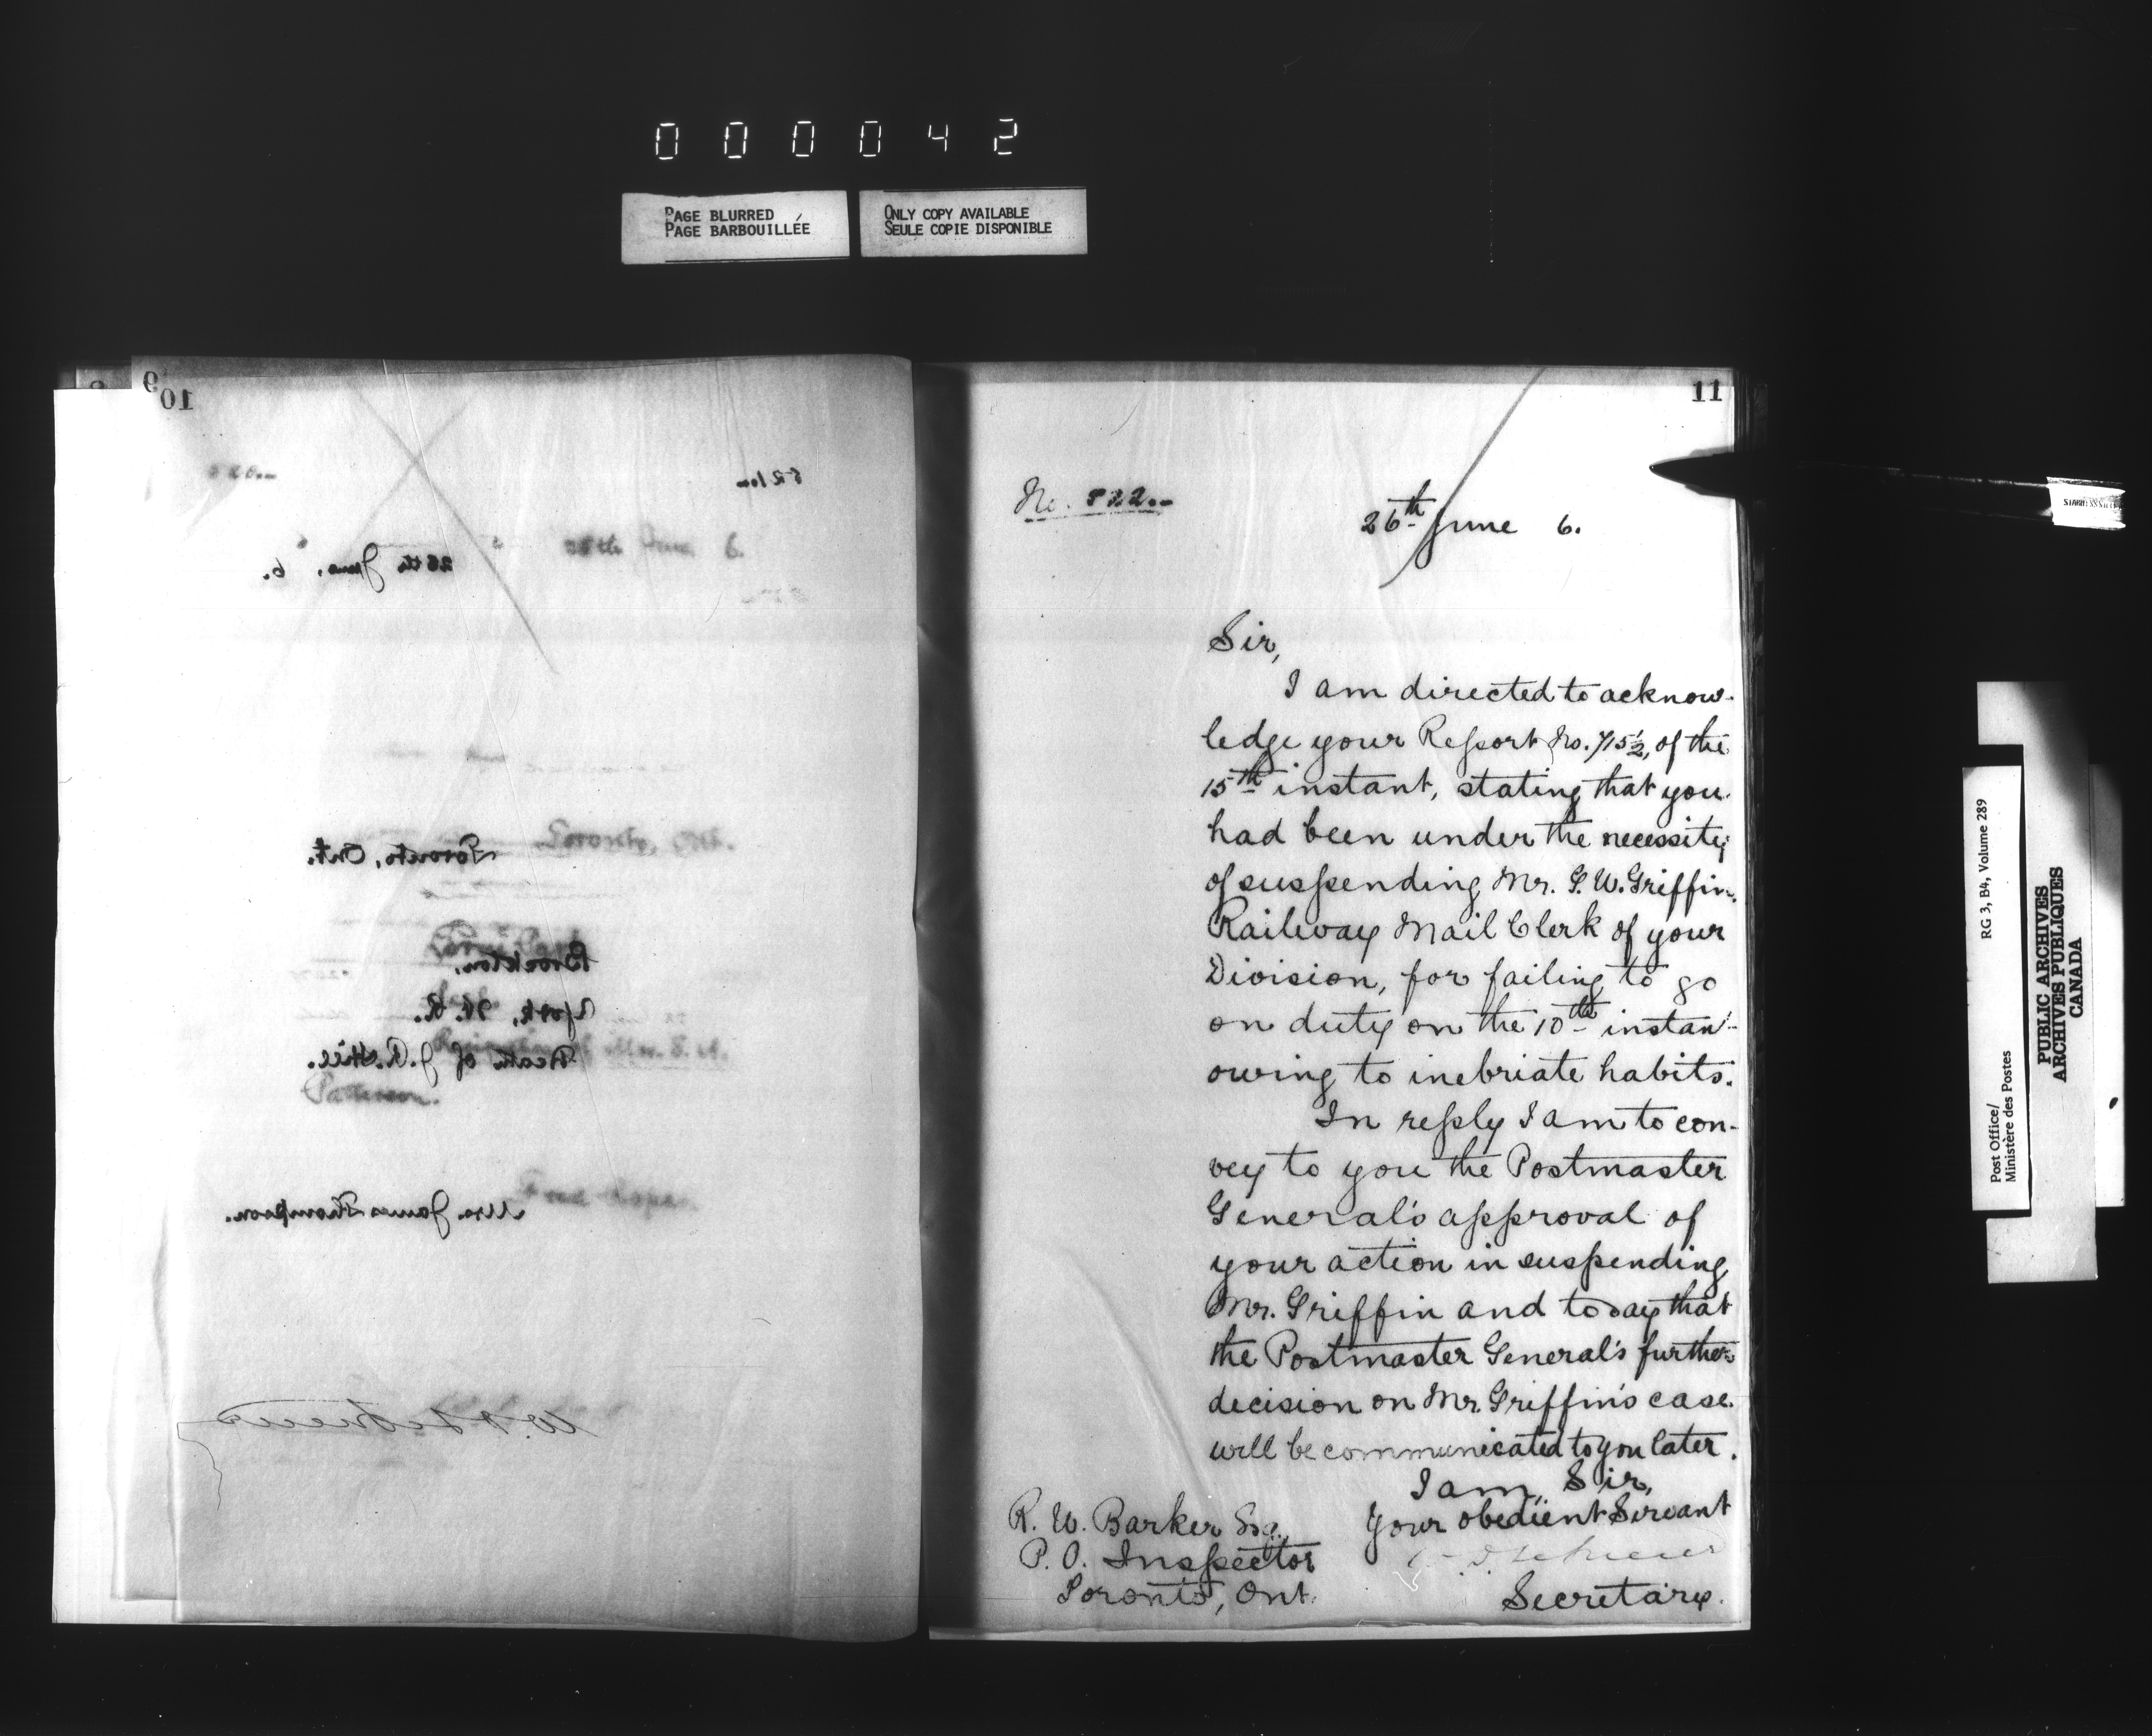 000042
PAGE BLURRED
PAGE BARBOUILLÉE
ONLY COPY AVAILABLE
SEULE COPIE DISPONIBLE
9
10
521
26th June, 6.
Toronto, Ont.
Brockton,
York, W. R.
Death of J. R.
Mrs. James Thompson.
11
No. 522.-
26th June 6.
Sir,
I am directed to acknow-
ledge your Report No. 715½, of the
15th instant, stating that you
had been under the necessity
of suspending Mr. G. W. Griffin,
Railway Mail Clerk of your
Division, for failing to go
on duty on the 10th instant
owing to inebriate habits.
In reply I am to con-
vey to you the Postmaster
General's approval of
your action in suspending
Mr. Griffin and to say that
the Postmaster General's further
decision on Mr. Griffin's case
will be communicated to you later.
I am, Sir,
Your obedient Servant
Secretary.
R. W. Barker Esq.
P. O. Inspector
Toronto, Ont.
RG 3, B4, Volume 289
Post Office/
Ministère des Postes
PUBLIC ARCHIVES
ARCHIVES PUBLIQUES
CANADA